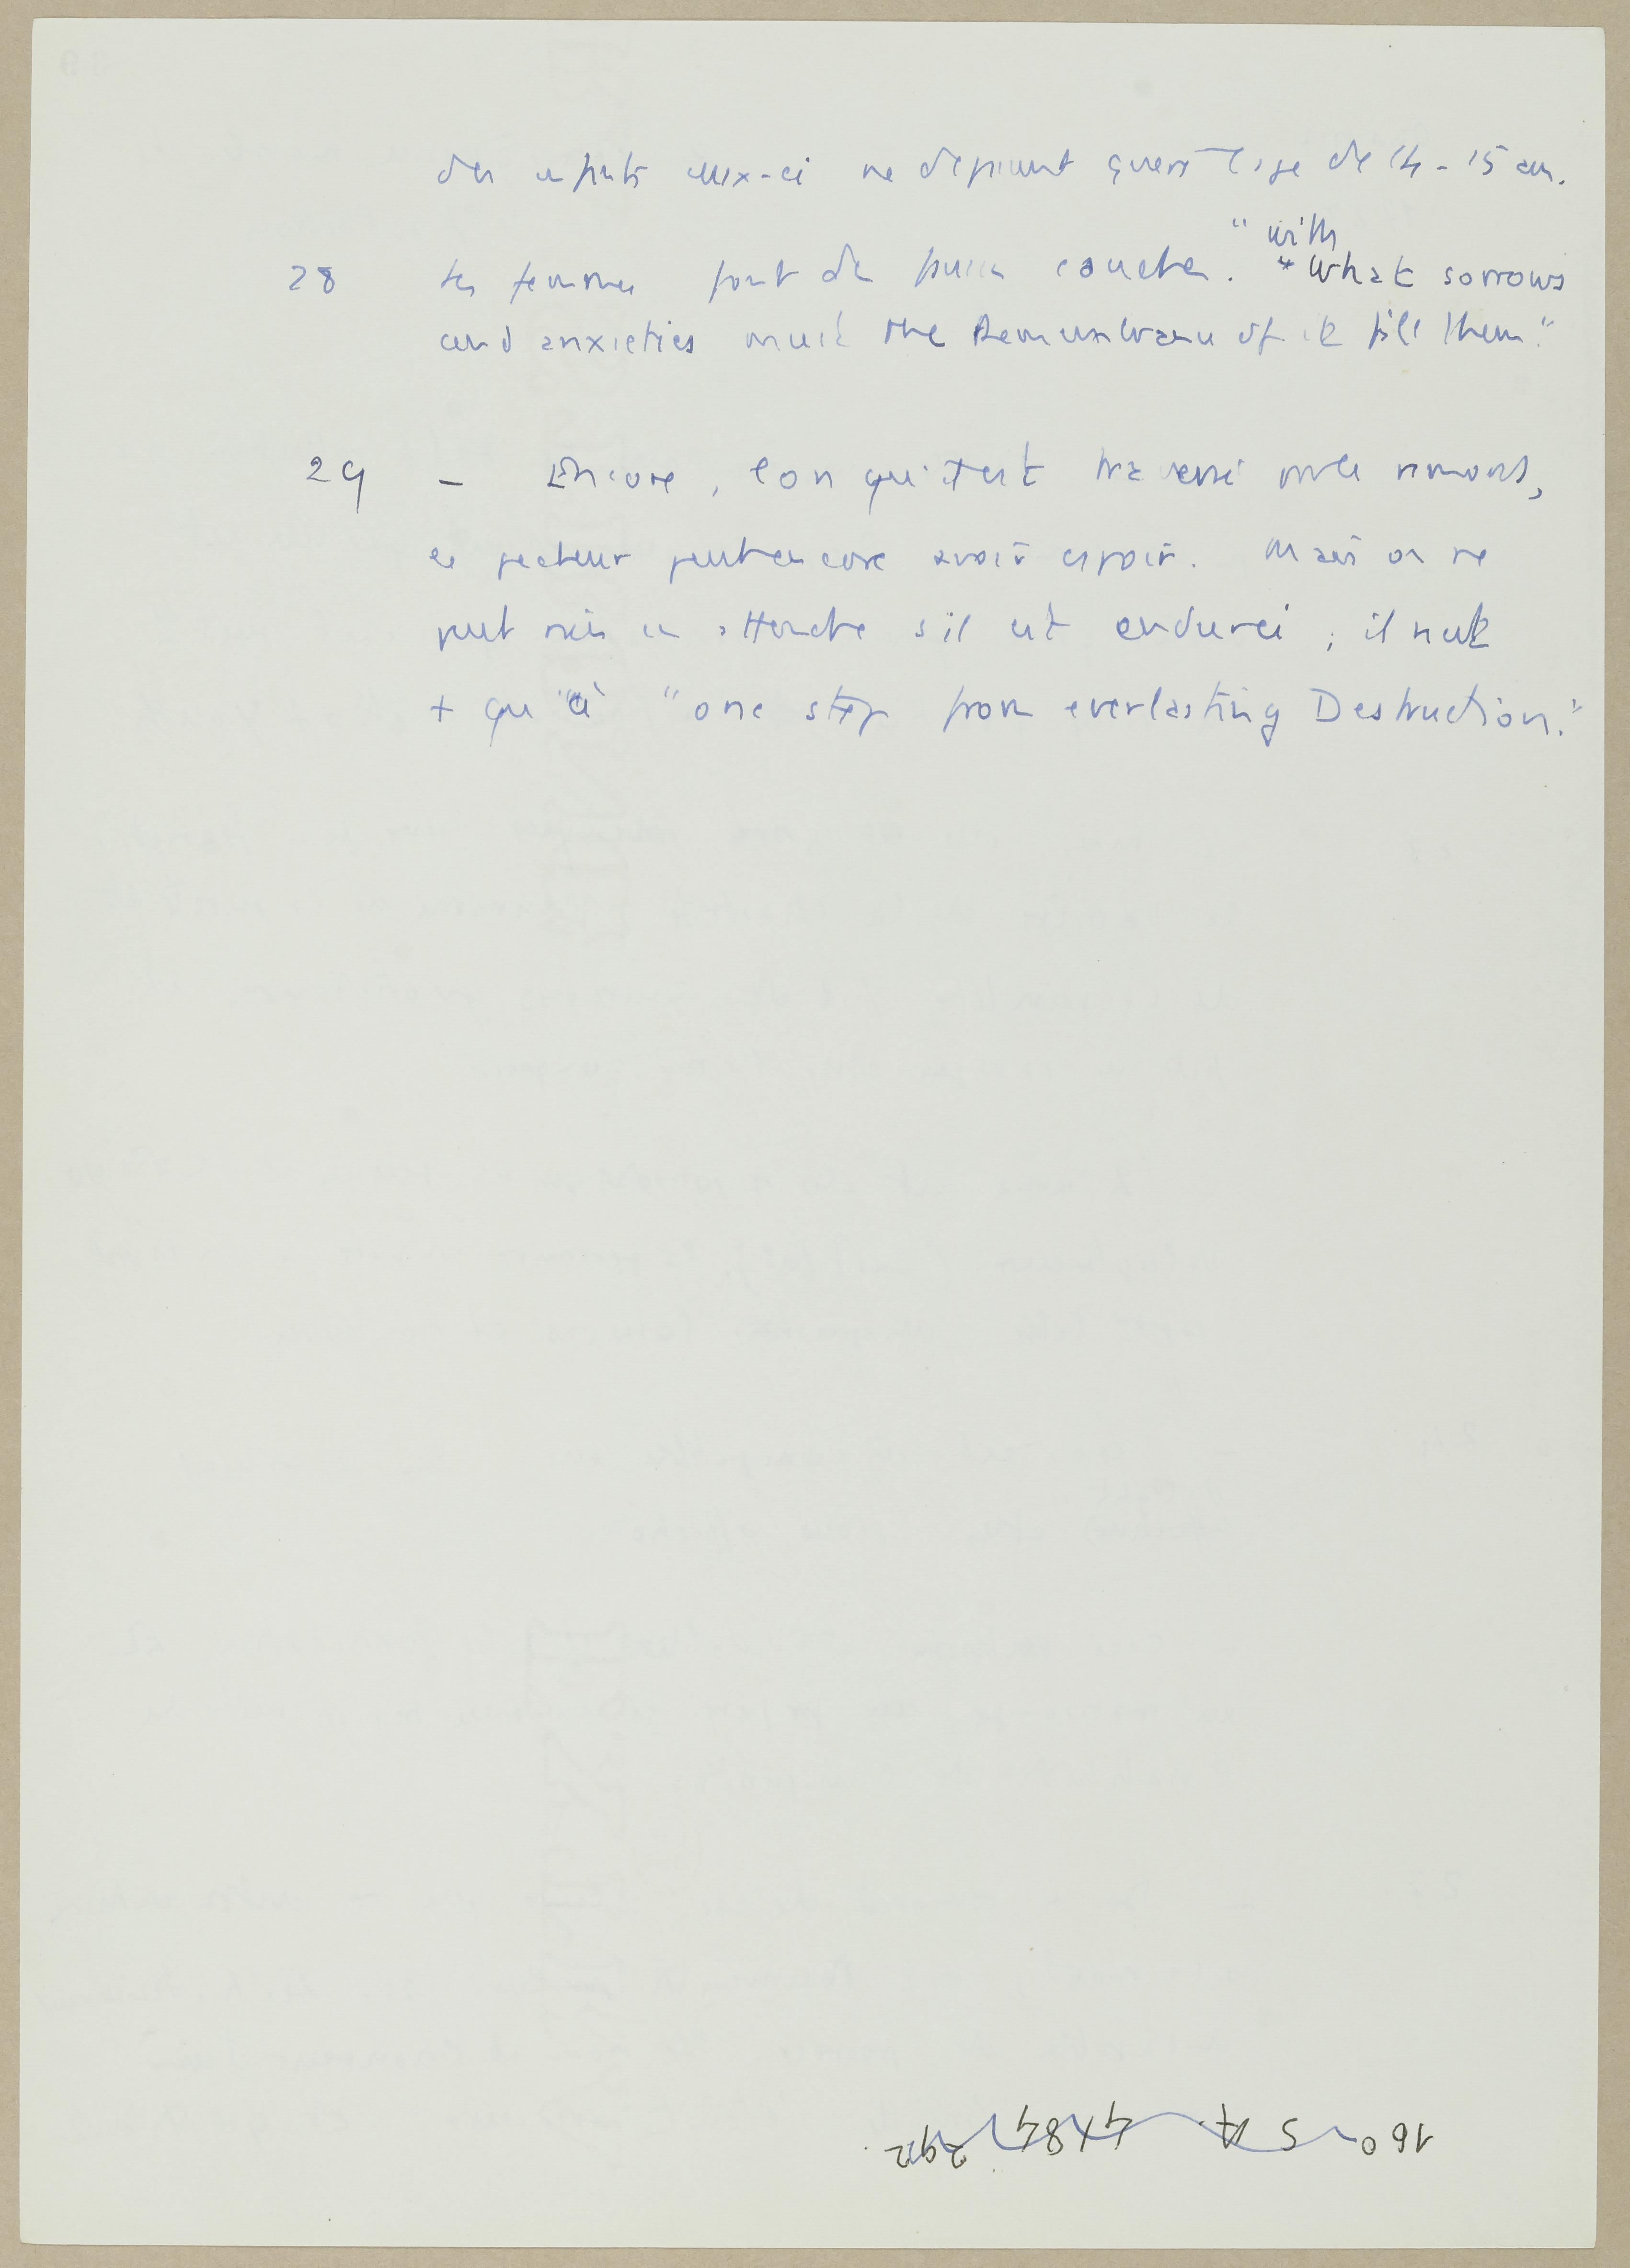 des enfants ceux-ci ne dépassent guère l'âge de 14-15 ans.
28 les femmes font de fausses couches. " with
" What sorrows
and anxieties must the Remembrance of it fill them."
29 - Encore, lorsqu'il est traversé par le remords,
le pécheur peut encore avoir espoir. Mais on ne
peut rien en attendre s'il est endurci ; il n'est
+ qu'à "one step from everlasting Destruction."
160 S A 4x84 292